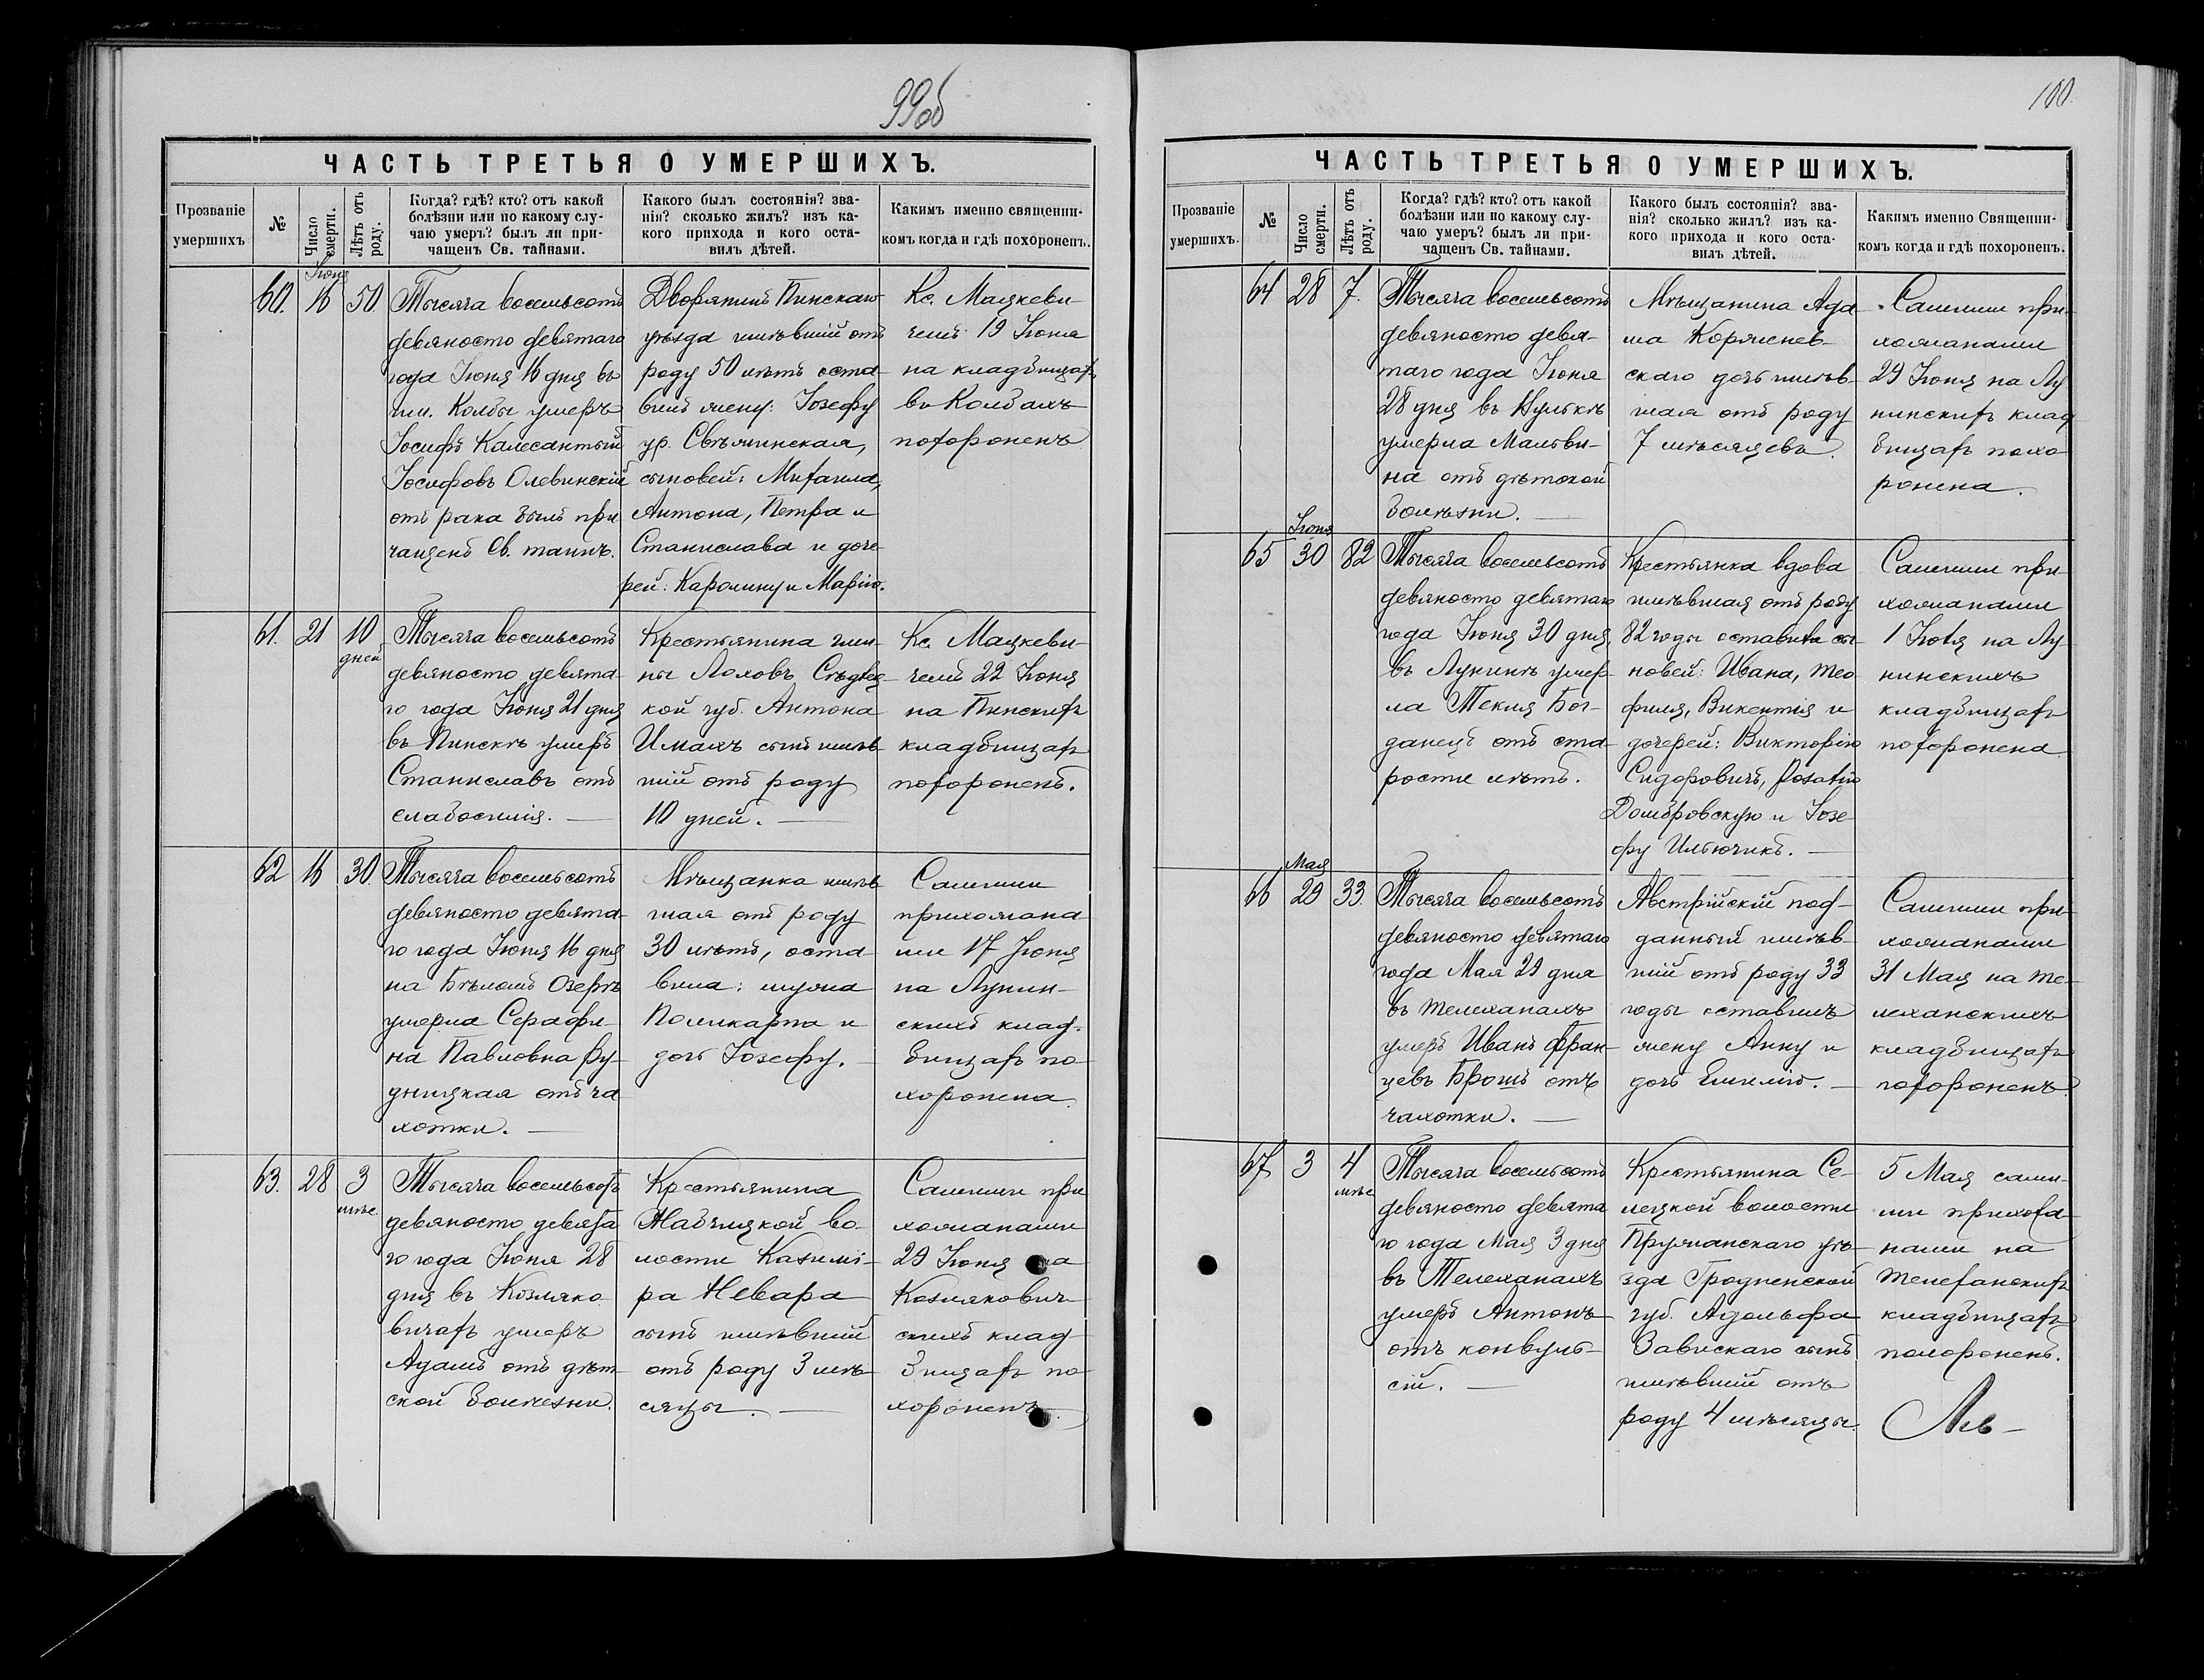 99об
ЧАСТЬ ТРЕТЬЯ О УМЕРШИХЪ.
Прозваніе умершихъ
№
Число смерти.
Лѣтъ отъ роду.
Когда? гдѣ? кто? отъ какой
болѣзни или по какому слу-
чаю умеръ? былъ ли при-
чащенъ Св. тайнами.
Какого былъ состоянія? зва-
нія? сколько жилъ? изъ ка-
кого прихода и кого оста-
вилъ дѣтей.
Какимъ именно священни-
комъ когда и гдѣ похороненъ.
Іюня
60. 16 50
Тысяча восемьсотъ
девяносто девятаго
года Іюня 16 дня въ
им. Колбы умеръ
Іосифъ Калесантый
Іосифовъ Олевинскій
отъ рака былъ при
чащенъ Св. таинъ.
Дворянинъ Пинскаго
уѣзда имѣвшій отъ
роду 50 лѣтъ оста-
вилъ жену: Іозефу
ур.
сыновей: Михаила,
Антона, Петра и
Станислава и доче-
рей: Каролину и Марію.
Кс. Мацкеви-
чемъ 19 Іюня
на кладбищахъ
въ Колбахъ
похороненъ
61. 21 10
дней
Тысяча восемьсотъ
девяносто девята-
го года Іюня 21 дня
въ Пинскѣ умеръ
Станиславъ отъ
слабосилія.
Крестьянина гми-
ны Лоховъ Сѣдлец-
кой губ. Антона
Ималъ сынъ имѣв
шій отъ роду
10 дней.
Кс. Мацкеви-
чемъ 22 Іюня
на Пинскихъ
кладбищахъ
похороненъ.
62 16 30.
Тысяча восемьсотъ
девяносто девята-
го года Іюня 16 дня
на Бѣломъ Озерѣ
умерла Серафи-
на Павловна Ру-
дницкая отъ ча
хотки.
Мѣщанка имѣв
шая отъ роду
30 лѣтъ, оста-
вила: мужа
Поликарпа и
дочь Іозефу.
Самими
прихожана
ми 17 Іюня
на Лунин-
скихъ клад-
бищахъ по-
хоронена.
63. 28 3
мѣс.
Тысяча восемьсотъ
девяносто девята
го года Іюня 28
дня въ Козляко
вичахъ умеръ
Адамъ отъ дѣт-
ской болѣзни.
Крестьянина
Жабчицкой во-
лости Казимі-
ра Невара
сынъ имѣвшій
отъ роду 3 мѣ-
сяцы.
Самими при
хожанами
29 Іюня на
Козлякович-
скихъ клад
бищахъ по-
хороненъ.
100.
ЧАСТЬ ТРЕТЬЯ О УМЕРШИХЪ.
Прозваніе умершихъ.
№
Число смерти.
Лѣтъ отъ роду.
Когда? гдѣ? кто? отъ какой
болѣзни или по какому слу-
чаю умеръ? былъ ли при-
чащенъ Св. тайнами.
Какого былъ состоянія? зва-
нія? сколько жилъ? изъ ка-
кого прихода и кого оста-
вилъ дѣтей.
Какимъ именно Священни-
комъ когда и гдѣ похороненъ.
64 28 7.
Тысяча восемьсотъ
девяносто девя-
таго года Іюня
28 дня въ
умерла Мальви-
на отъ дѣтской
болѣзни.
Мѣщанина Ада
ма Корженев-
скаго дочь имѣв-
шая отъ роду
7 мѣсяцевъ.
Самими при-
хожанами
29 Іюня на Лу
нинскихъ клад
бищахъ похо
ронена.
Іюня
65 30 82
Тысяча восемьсотъ
девяносто девятаго
года Іюня 30 дня
въ Лунинѣ умер-
ла Текля Бог-
данецъ отъ ста-
рости лѣтъ.
Крестьянка вдова
имѣвшая отъ роду
82 годы оставила сы-
новей: Ивана, Тео
филя, Викентія и
дочерей: Викторію
Сидоровичъ, Розалію
Домбровскую и Іозе-
фу Ильючикъ.
Самими при-
хожанами
1 Іюля на Лу-
нинскихъ
кладбищахъ
похоронена
Мая
66 29 33.
Тысяча восемьсотъ
девяносто девятаго
года Мая 29 дня
въ Телеханахъ
умеръ Иванъ Фран-
цевъ Брошъ отъ
чахотки.
Австрійскій под-
данный имѣв-
шій отъ роду 33
годы оставилъ
жену Анну и
дочь Емилію.
Самими при-
хожанами
31 Мая на Те-
леханскихъ
кладбищахъ
похороненъ.
67. 3 4
мѣс
Тысяча восемьсотъ
девяносто девята
го года Мая 3 дня
въ Телеханахъ
умеръ Антонъ
отъ конвуль-
сій.
Крестьянина Се-
лецкой волости
Пружанскаго уѣ-
зда Гродненской
губ. Адольфа
Завискаго сынъ
имѣвшій отъ
роду 4 мѣсяцы.
5 Мая сами-
ми прихожа-
нами на
Телеханскихъ
кладбищахъ
похороненъ.